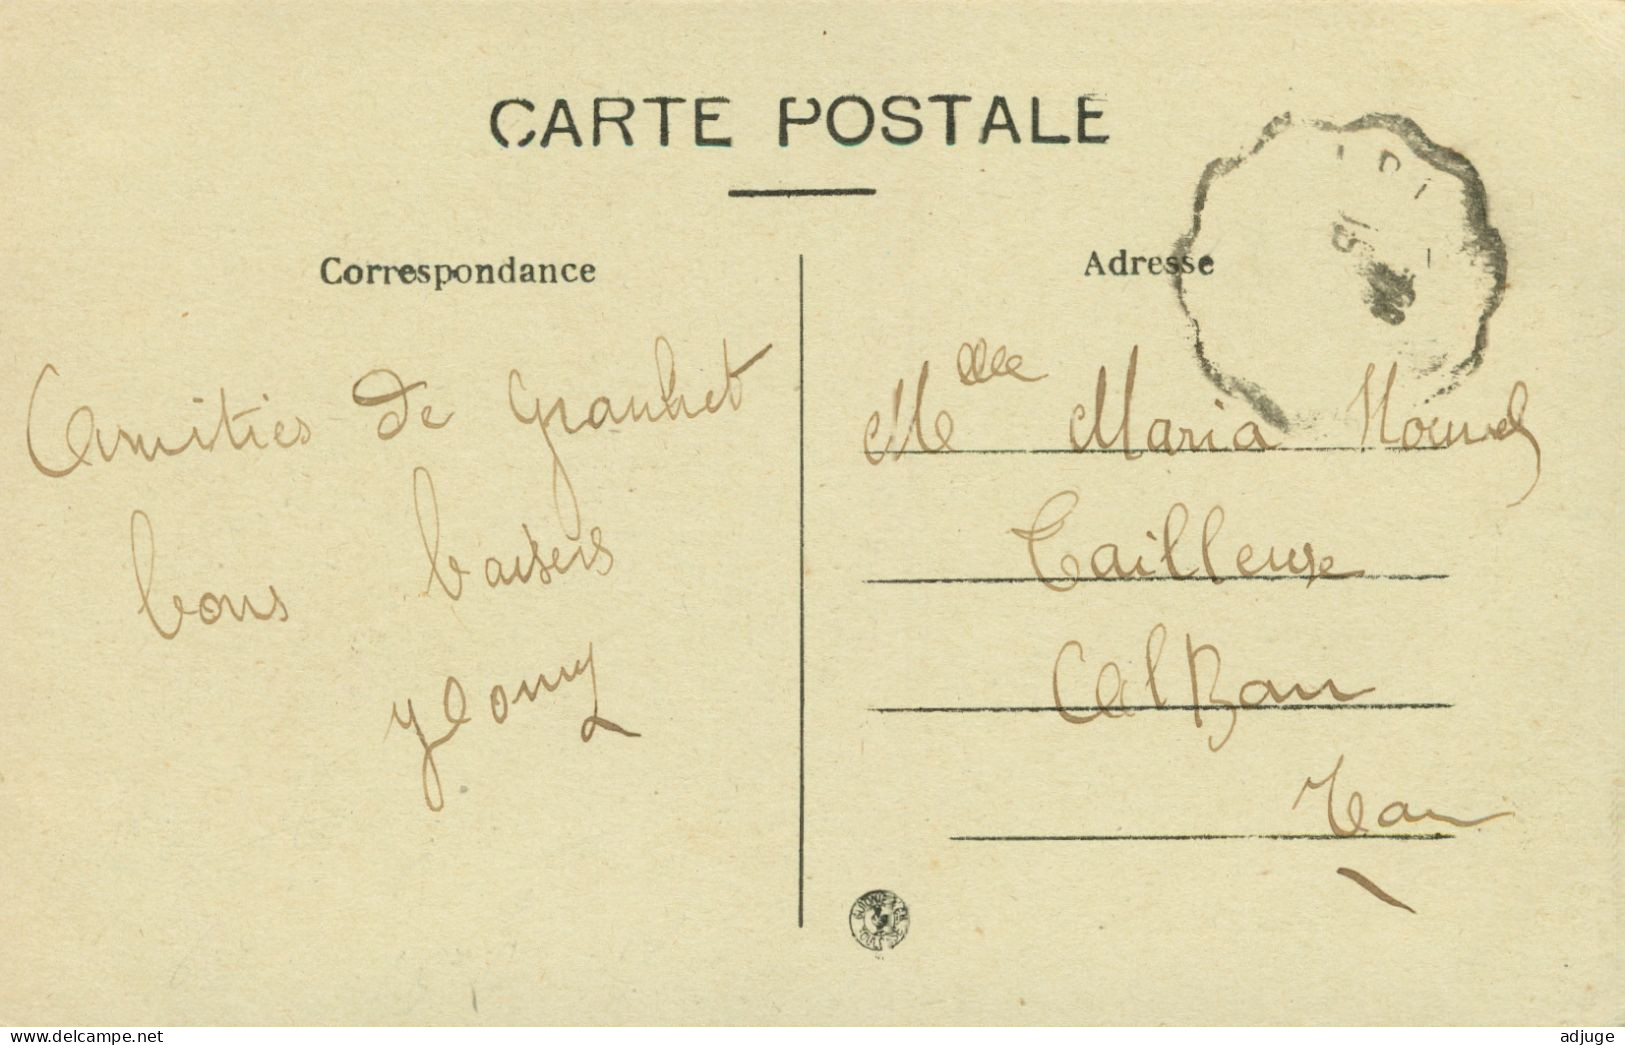 CARTE POSTALE
Correspondance
Amitiés de Graulhet
bons baisers
Adresse
Melle Maria
Tailleuse
Alban
Tarn
www.delcampe.net
adjuge